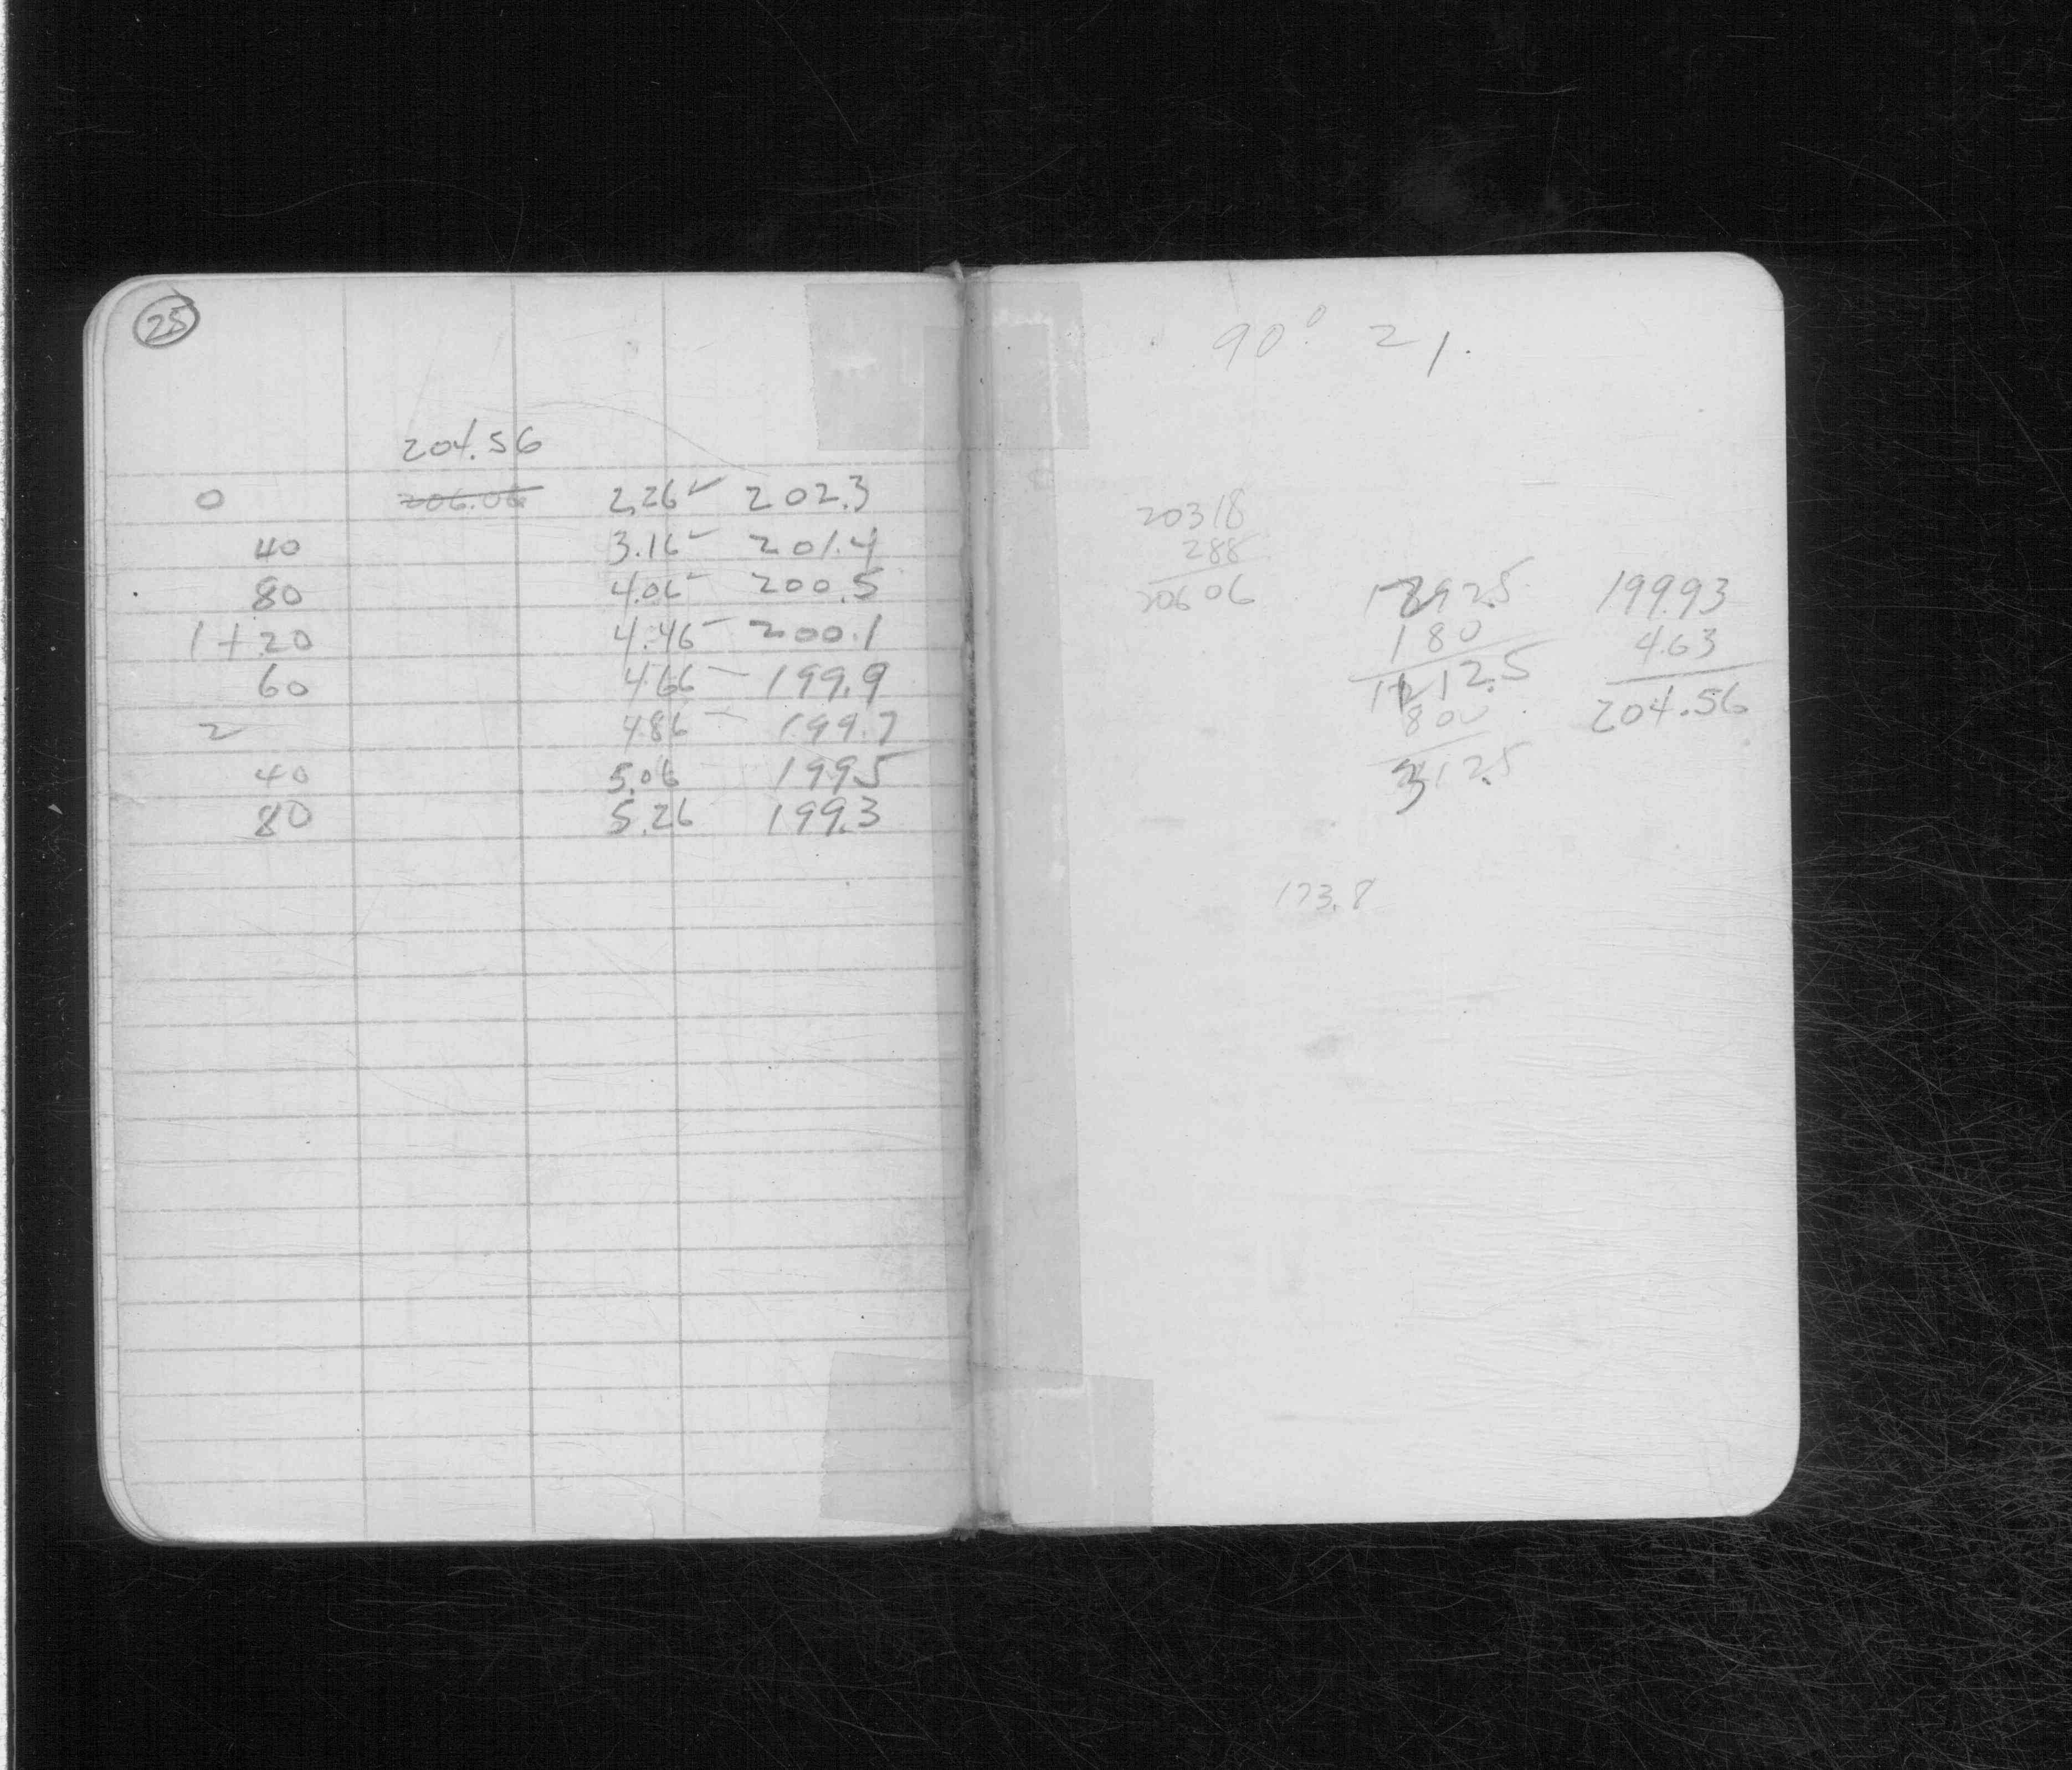 25
204.56
0 206.06 2.26✓ 202.3
40 3.16✓ 201.4
80 4.06✓ 200.5
1+20 4.46✓ 200.1
60 4.66 — 199.9
2 4.86 — 199.7
40 5.06 199.5
80 5.26 199.3
90° 21.
20318
288
20606
180
800
312.5
199.93
4.63
204.56